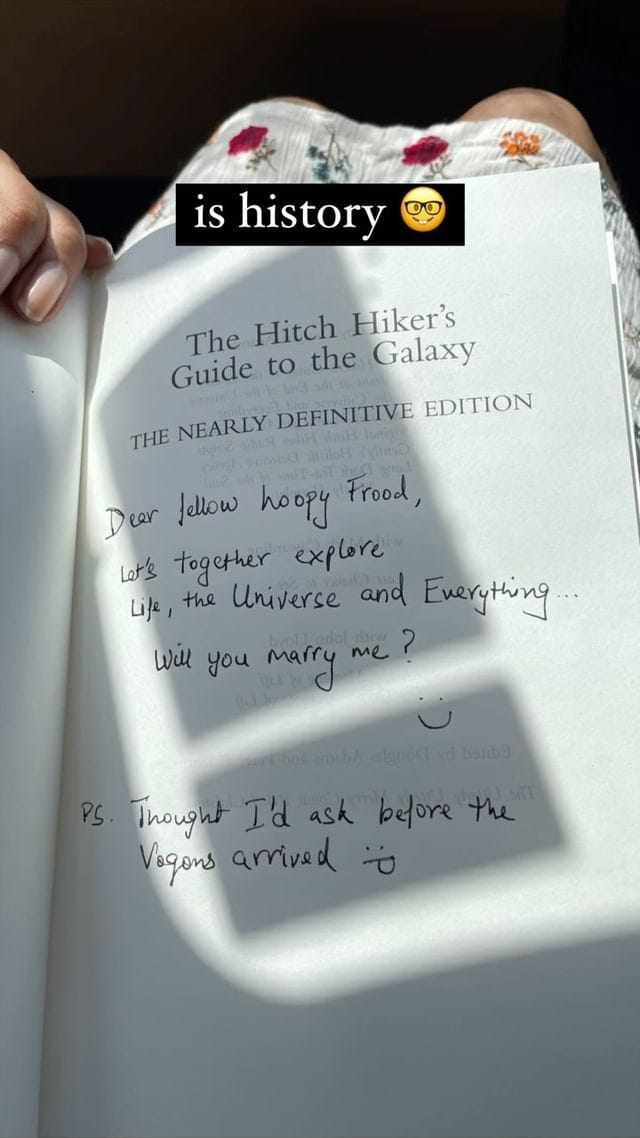 is history 🤓
The Hitch Hiker's
Guide to the Galaxy
THE NEARLY DEFINITIVE EDITION
Dear fellow hoopy Frood,
Let's together explore
Life, the Universe and Everything...
Will you marry me?
:)
PS. Thought I'd ask before the
Vogons arrived :D